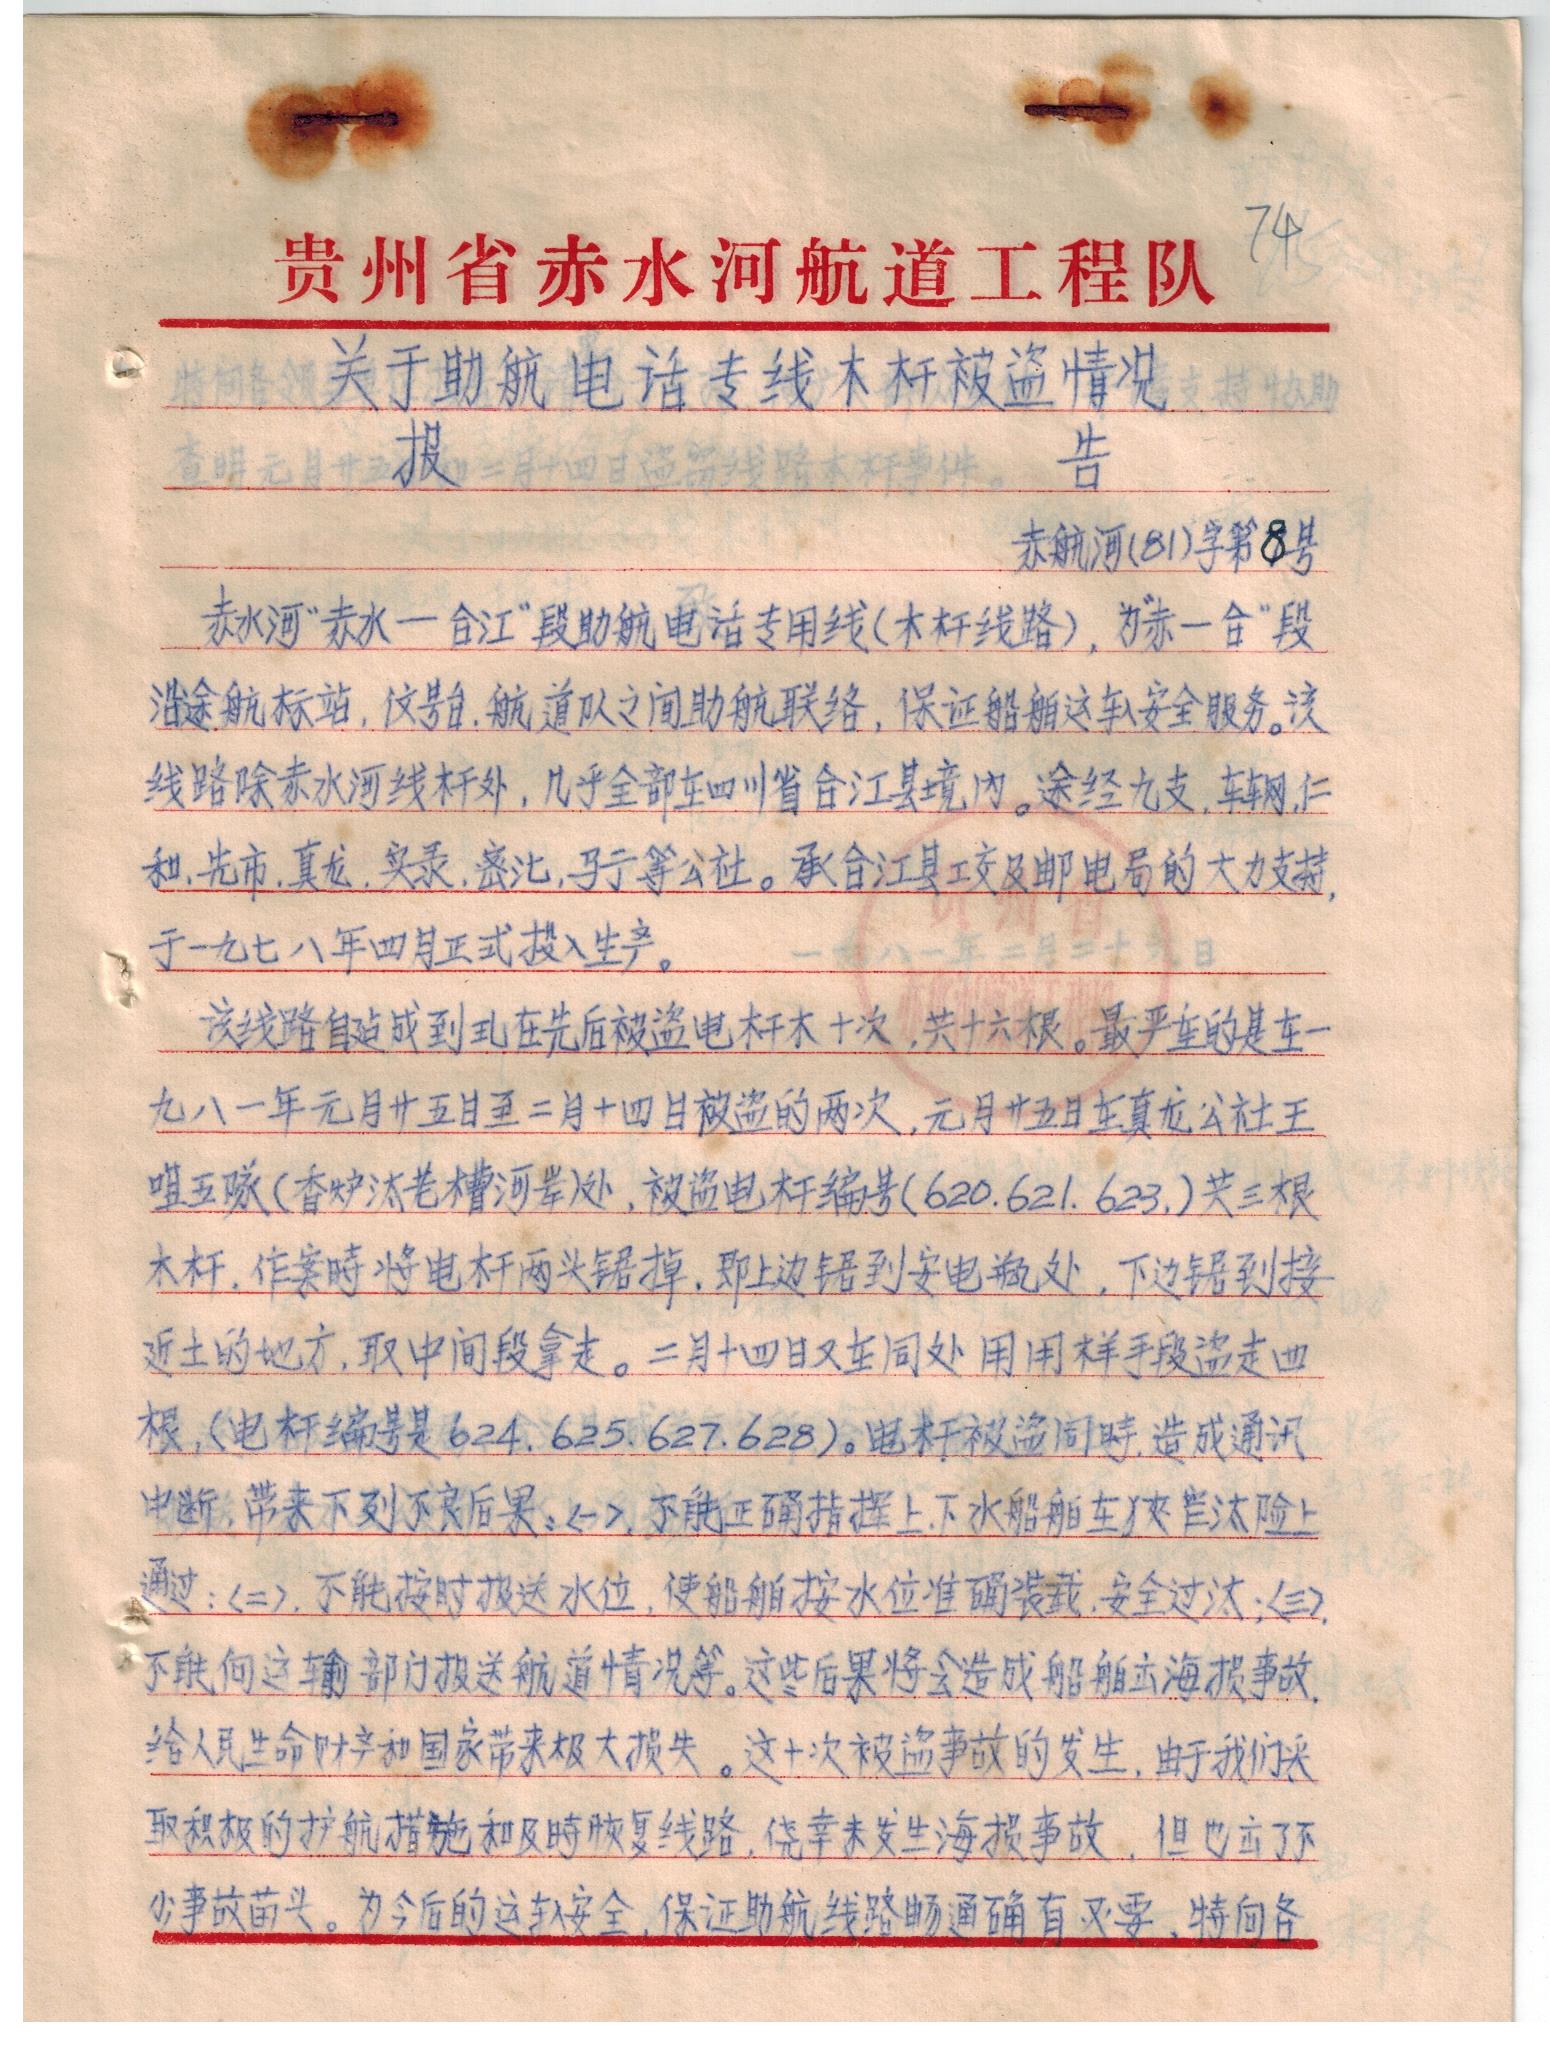 74
贵州省赤水河航道工程队
关于助航电话专线木杆被盗情况
报告
赤航河(81)字第8号
赤水河“赤水一合江”段助航电话专用线(木杆线路),为“赤一合”段
沿途航标站,信号台.航道队之间助航联络,保证船舶运输安全服务。该
线路除赤水河线杆外,几乎全部在四川省合江县境内。途经九支,车辋,仁
和,先市,真龙,实录,密沱,马宁等公社。承合江县工交及邮电局的大力支持,
于一九七八年四月正式投入生产。
该线路自站成到现在先后被盗电杆木十次,共十六根。最严重的是在一
九八一年元月廿五日至二月十四日被盗的两次,元月廿五日在真龙公社王
咀五队(香炉汰老槽河岸)处,被盗电杆编号(620.621.623.)共三根
木杆.作案時将电杆两头锯掉.即上边锯到安电瓶处,下边锯到接
近土的地方,取中间段拿走。二月十四日又在同处用同样手段盗走四
根,(电杆编号是624.625.627.628)。电杆被盗同時.造成通讯
中断.带来下列不良后果:<一>.不能正确指挥上.下水船舶在狭窄汰险上
通过:<二>.不能按时报送水位,使船舶按水位准确装载.安全过汰;<三>.
不能向运输部门报送航道情况等。这些后果将会造成船舶出海损事故.
给人民生命财产和国家带来极大损失。这十次被盗事故的发生.由于我们采
取积极的护航措施和及時恢复线路.侥幸未发生海损事故,但也出了不
少事故苗头。为今后的运输安全.保证助航线路畅通确有必要,特向各